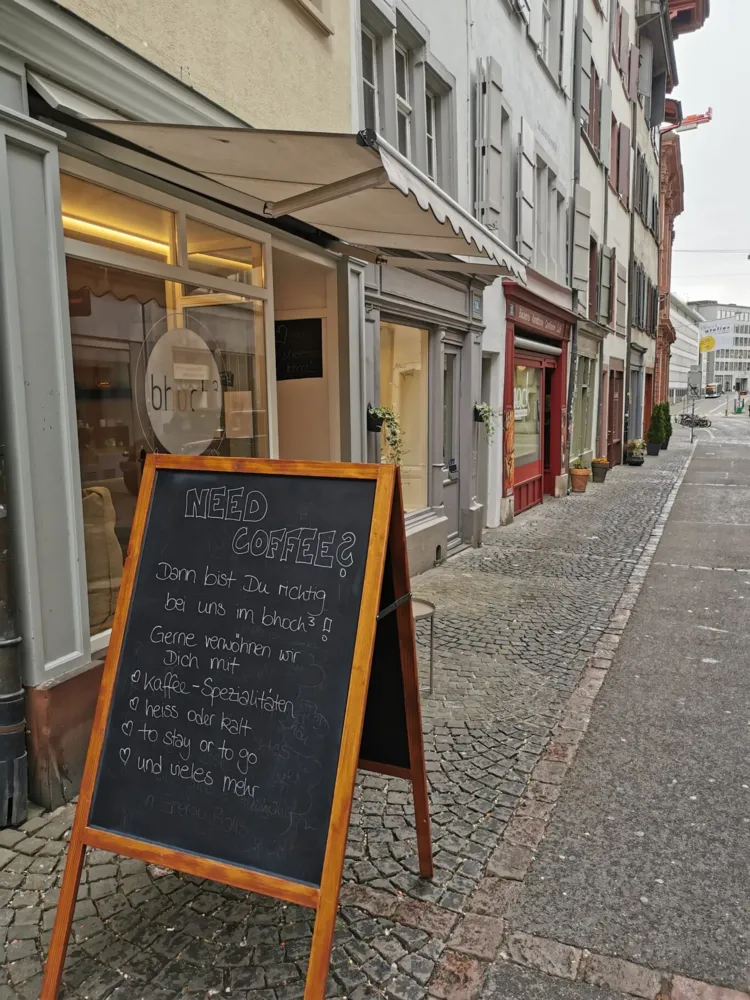 NEED
COFFEE?
Dann bist Du richtig
bei uns im bhoch³!!
Gerne verwöhnen wir
Dich mit
♡ Kaffee-Spezialitäten
♡ heiss oder kalt
♡ to stay or to go
♡ und vieles mehr
bhoch3